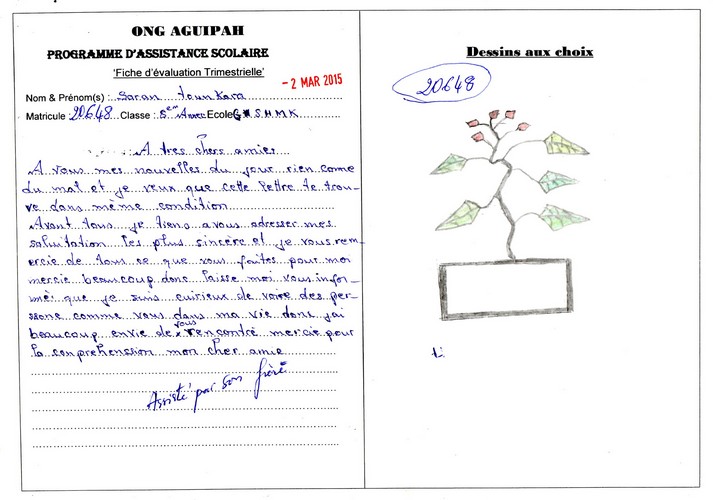 ONG AGUIPAH
PROGRAMME D'ASSISTANCE SCOLAIRE
'Fiche d'évaluation Trimestrielle'
- 2 MAR 2015
Nom & Prénom(s) : Saran Tounkara
Matricule 20648 Classe : 5em Annee Ecole G S H M K
A très chers amies
A vous mes nouvelles du jour rien come
du mal et je veux que cette lettre te trou-
ve dans même condition
Avant tous je tiens a vous adresser mes
salutation les plus sincère et je vous rem-
ercie de tous ce que vous faites pour moi
mercie beaucoup donc laisse moi vous infor-
mé que je suis curieux de voire des per-
sone comme vous dans ma vie dons j'ai
beaucoup envie de vous rencontré mercie pour
la conprehension mon cher amie
Assisté par son frère
Dessins aux choix
20648